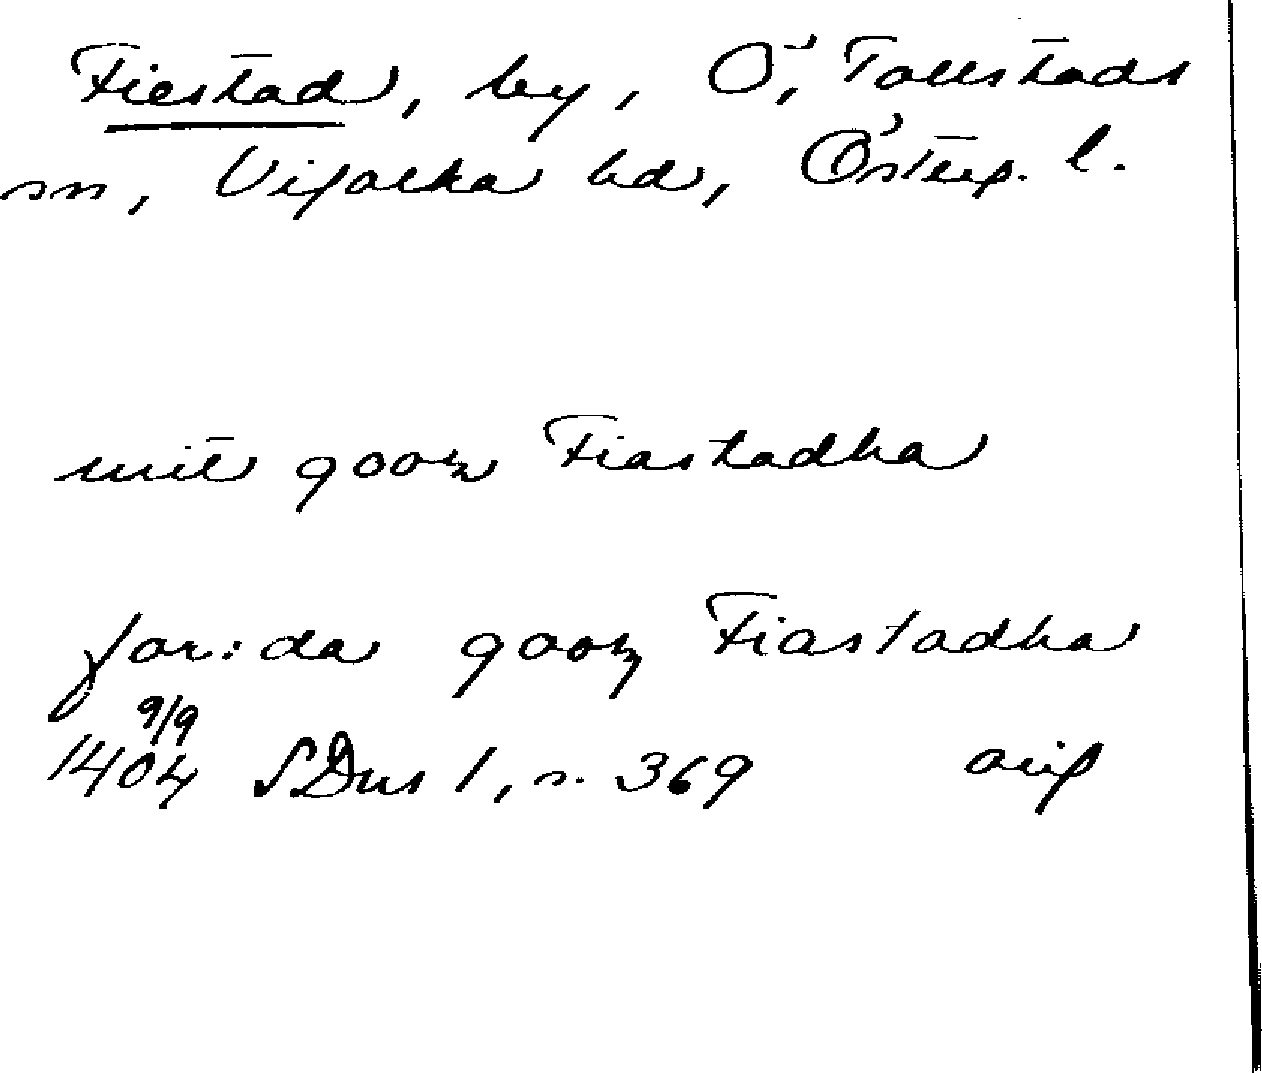 Fiestad, by, Ö, Tollstads
sn, Vifolka hd, Österg. l.
mit gooz Fiastadha
for:da gooz Fiastadha
9/9
1404 SDns 1, s. 369 orig